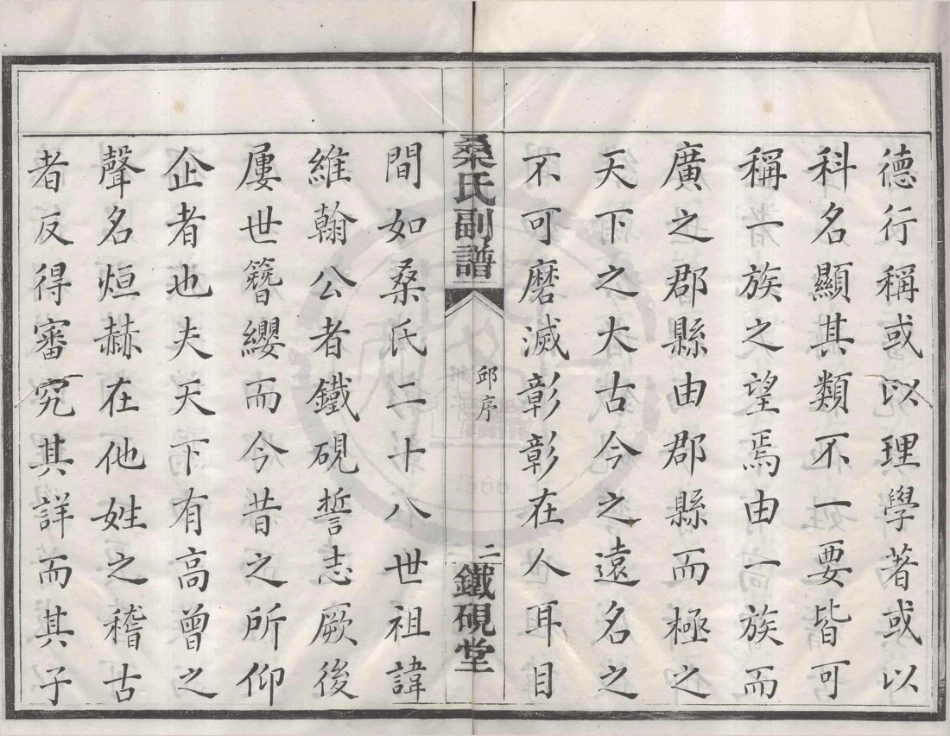 德行稱或以理學著或以
科名顯其類不一要皆可
稱一族之望焉由一族而
廣之郡縣由郡縣而極之
天下之大古今之遠名之
不可磨滅彰彰在人耳目
桑氏副譜
邱序
二
鐵硯堂
間如桑氏二十八世祖諱
維翰公者鐵硯誓志厥後
屢世簪纓而今昔之所仰
企者也夫天下有高曾之
聲名烜赫在他姓之稽古
者反得審究其詳而其子